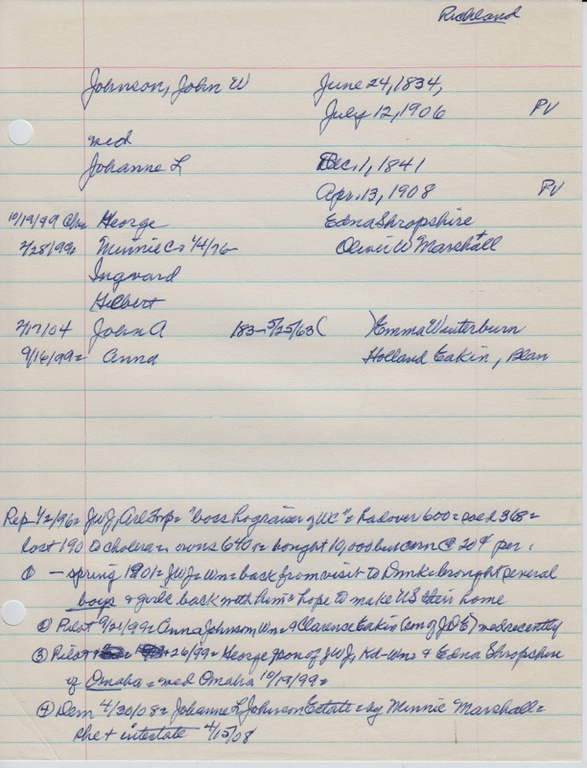 Richland
Johnson, John W June 24, 1834,
July 12, 1906 PV
med
Johanne L Dec. 1, 1841
Apr. 13, 1908 PV
10/19/99 George Edna Shropshire
2/28/99= Minnie C= 1/4/76- Oliver W Marshall
Ingvard
Hilbert
2/17/04 John A 183- 5/25/63( )Emma Winterburn
9/16/99= Anna Holland Eakin, Blair
Rep 1/2/96= JWJ, = "boss hograiser of WC" = had over 600 = sold 368 =
lost 190 to cholera = owns 640= bought 10,000 bu corn @ 20¢ per.
① - spring 1901= JWJ= Wn= back from visit to Dmk= brought several
boys & girls back with him= hope to make US their home
② Pilot 9/21/99= Anna Johnson, Wn= & Clarence Eakin (son of J D E) med recently
③ Pilot 26/99= George son of JWJ, Kd-Wn= & Edna Shropshire
of Omaha= med Omaha 10/19/99=
④ Dem 4/30/08= Johanne L Johnson Estate= by Minnie Marshall=
she + intestate 4/15/08